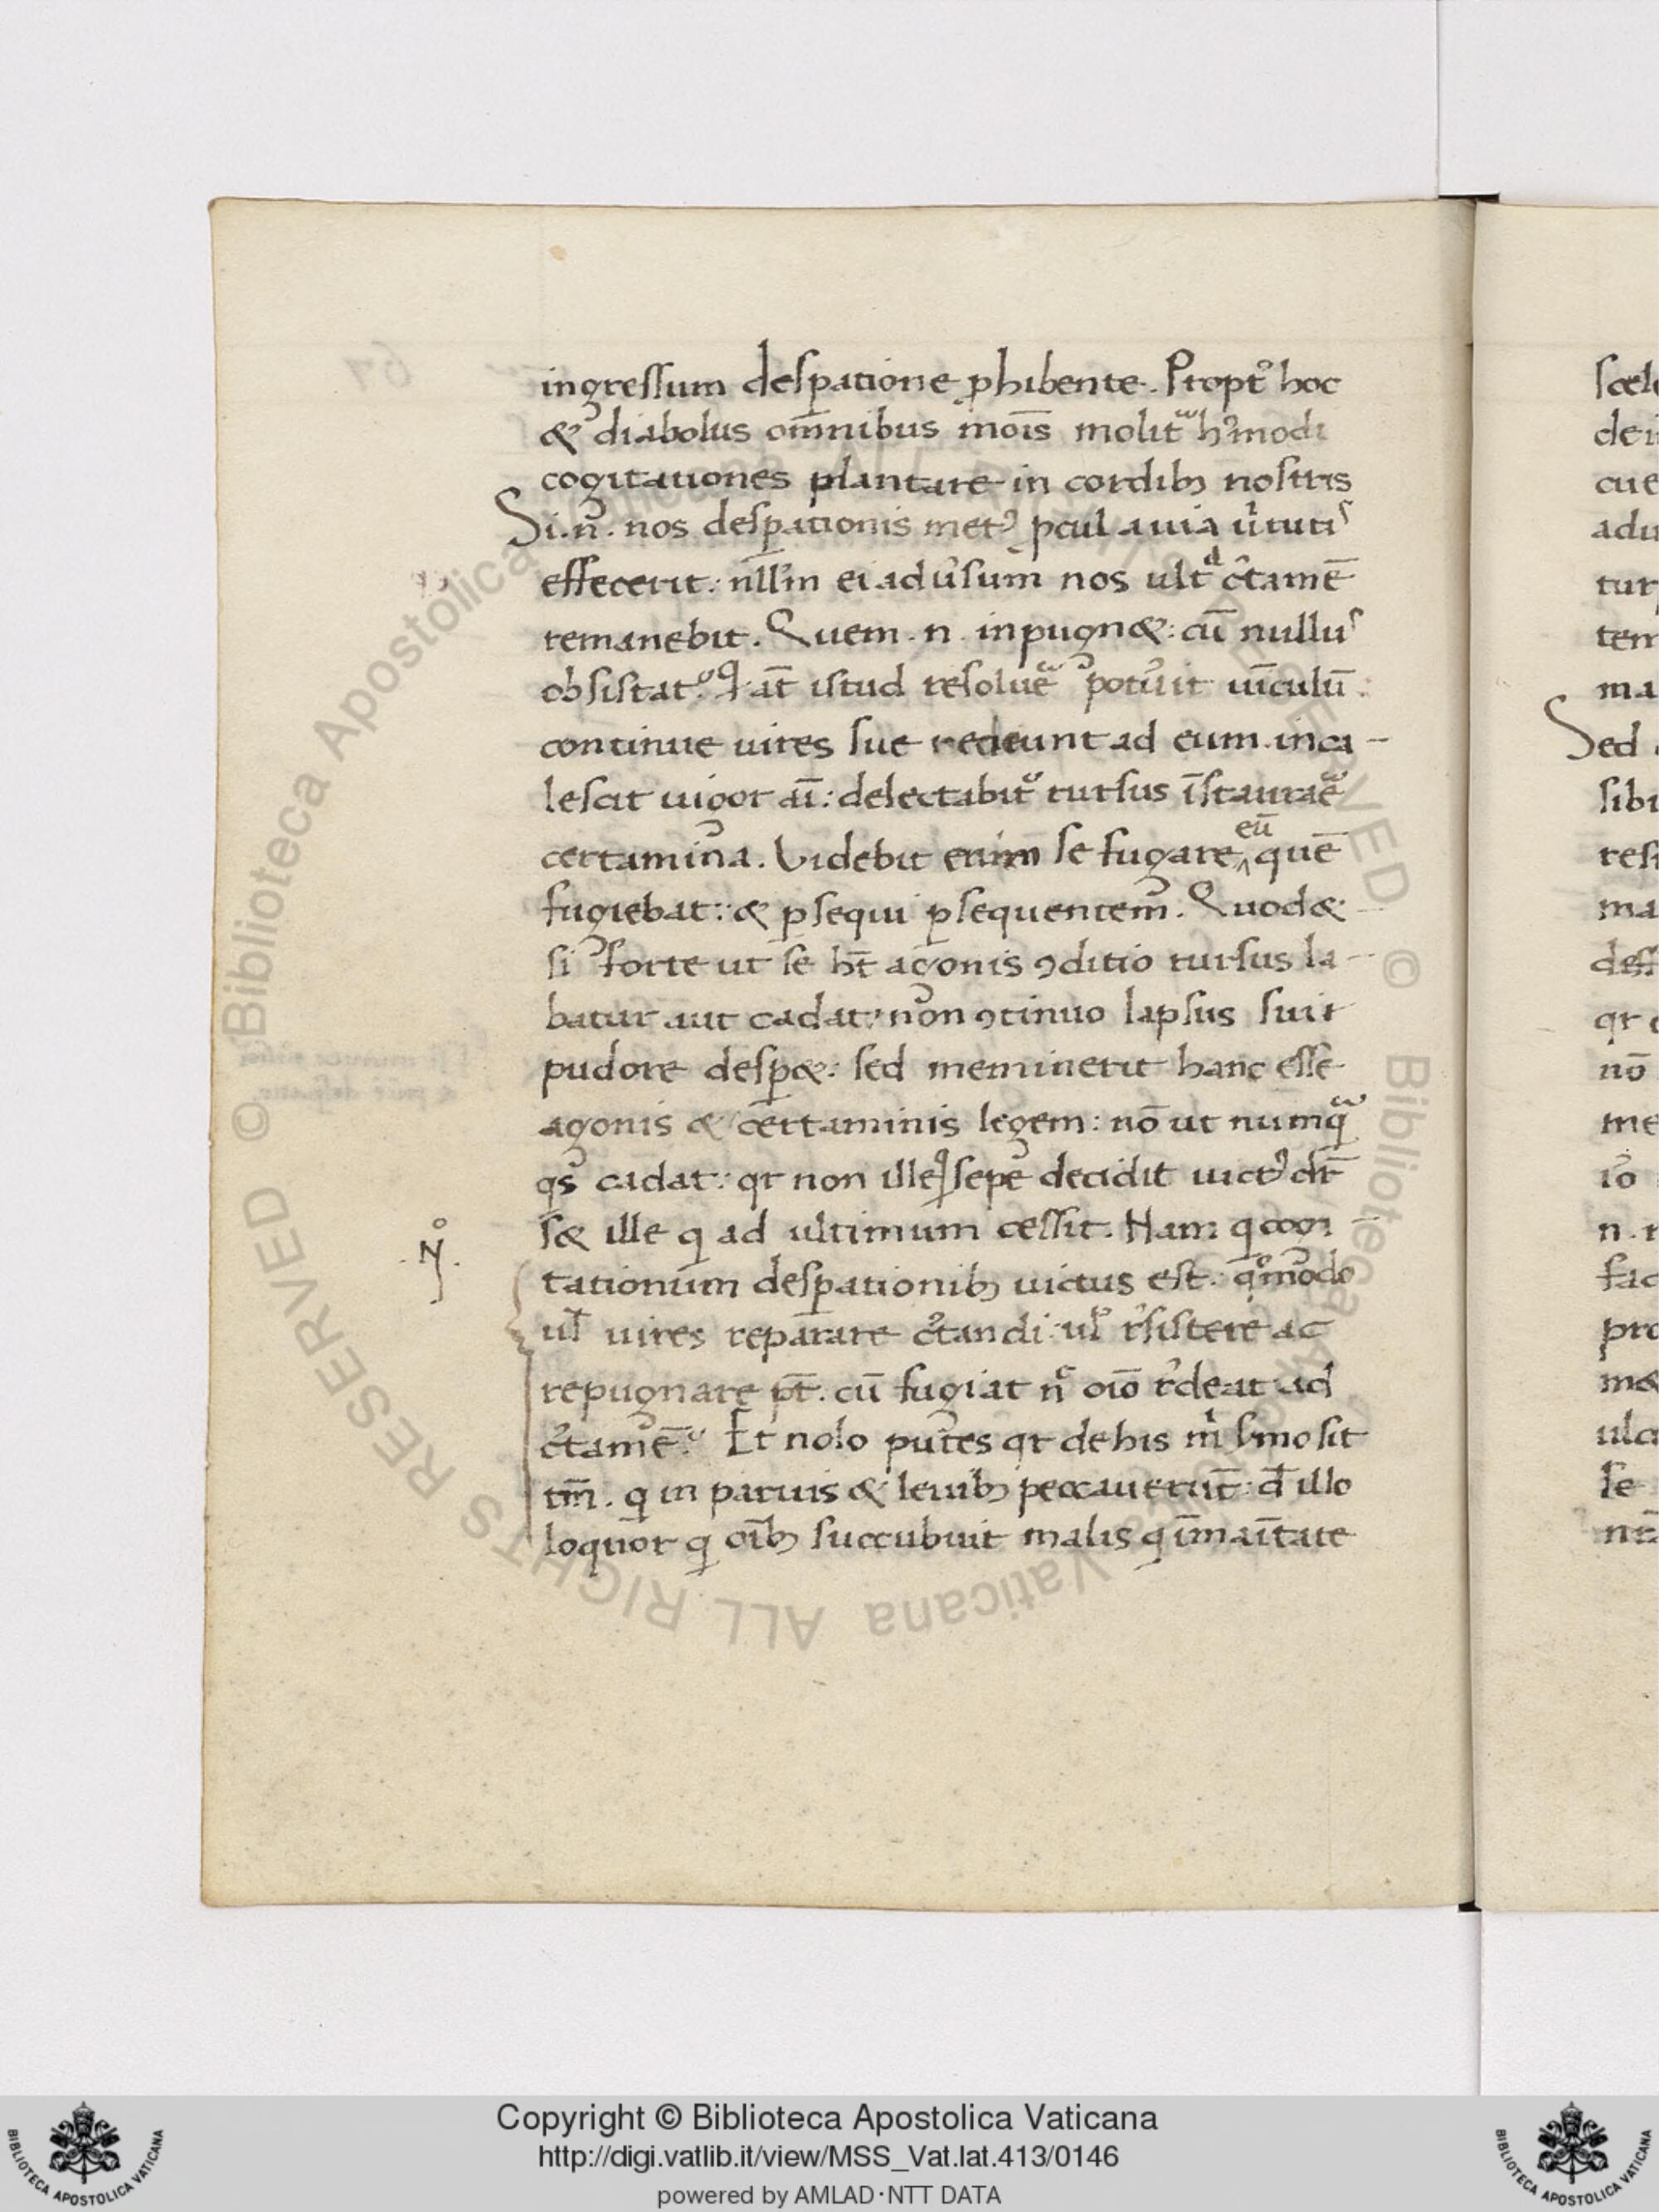 ingressum desꝑatione ꝓhibente. Propt̉ hoc
& diabolus om̅nibus mo̅is molit᷑ h̉modi
cogitationes plantare in cordibꝫ nostris
Si .n. nos desꝑationis metꝰ ꝓcul a uia u̓tutis
effecerit: nll̅m ei adu̓sum nos ult̉ c̓tame̅
remanebit. Quem .n. inpugn&: cu̅ nullus
obsistat? q at̅ istud resolue᷑ potuit ui̅culu̅:
continue uires sue redeunt ad eum. inca-
lescit uigor ai̅: delectabit᷑ rursus i̅staurae᷑
certamina. Videbit enim se fugare eu̅ que̅
fugiebat: & ꝑsequi ꝑsequentem. Quod &
si forte ut se ht̅ agonis ꝯditio rursus la-
batur aut cadat: non ꝯtinuo lapsus sui
pudore desꝑ&: sed meminerit hanc esse
agonis & certaminis legem: no̅ ut numq᷑
qs cadat: qr non ille q sepe decidit uictꝰ dr̅
s& ille q ad ultimum cessit. Nam q cogi-
tationum desꝑationibꝫ uictus est. qͦmodo
ul̅ uires reparare c̓tandi: ul̅ r̓sistere ac
repugnare pt̅. cu̅ fugiat nͨ oi̅o r̓deat ad
c̓tame̅? Et nolo putes qr de his m̓ s̓mo sit
tm̅. q in paruis & leuibꝫ peccauerut̅: d̅ illo
loquor q oi̅bꝫ succubuit malis q i̅mai̅tate
.N̊.
scel
dei
cue
adu
tur
tem
ma
Sed
sibi
resi
ma
deff
qr
no̅
me
io̅
n. r
fac
pro
m&
ulc
se
Copyright © Biblioteca Apostolica Vaticana
http://digi.vatlib.it/view/MSS_Vat.lat.413/0146
powered by AMLAD·NTT DATA
BIBLIOTECA APOSTOLICA VATICANA
BIBLIOTECA APOSTOLICA VATICANA
© Biblioteca Apostolica Vaticana ALL RIGHTS RESERVED
© Biblioteca Apostolica Vaticana ALL RIGHTS RESERVED